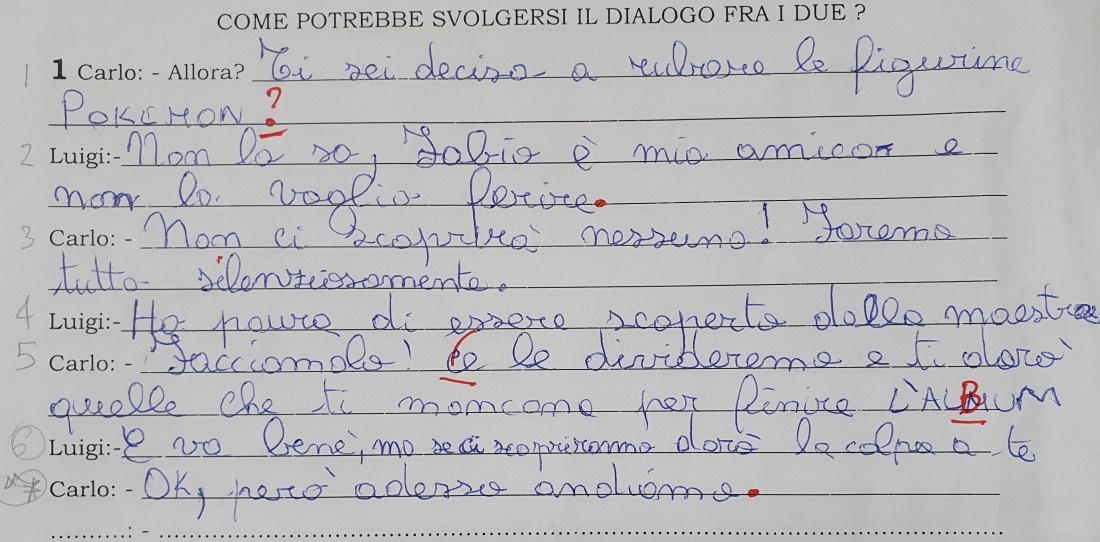 COME POTREBBE SVOLGERSI IL DIALOGO FRA I DUE ?
1 1 Carlo: - Allora? Ti sei deciso a rubare le figurine
POKEMON ?
2 Luigi:- Non lo so, Fabio è mio amico e
non lo voglio ferire.
3 Carlo: - Non ci scoprirà nessuno! Faremo
tutto silenziosamente.
4 Luigi:- Ho paura di essere scoperto dalla maestra
5 Carlo: - Facciamolo! Ce le divideremo e ti darò
quelle che ti mancano per finire L'ALBUM
6 Luigi:- E va bene, ma se ci scopriranno darò la colpa a te
Carlo: - OK, però adesso andiamo.
..........: - ..........